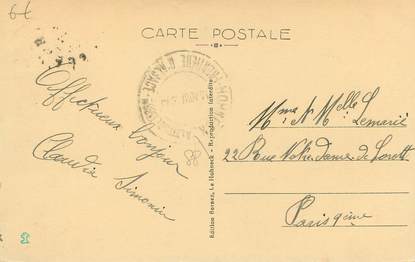 6f
CARTE POSTALE
Affectueux bonjour
Claudia Simonin
88
Edition Herzer, Le Hohneck - Reproduction interdite
Mme & Melle
Lemarié
22 Rue Notre Dame de Lorette
Paris 9ème